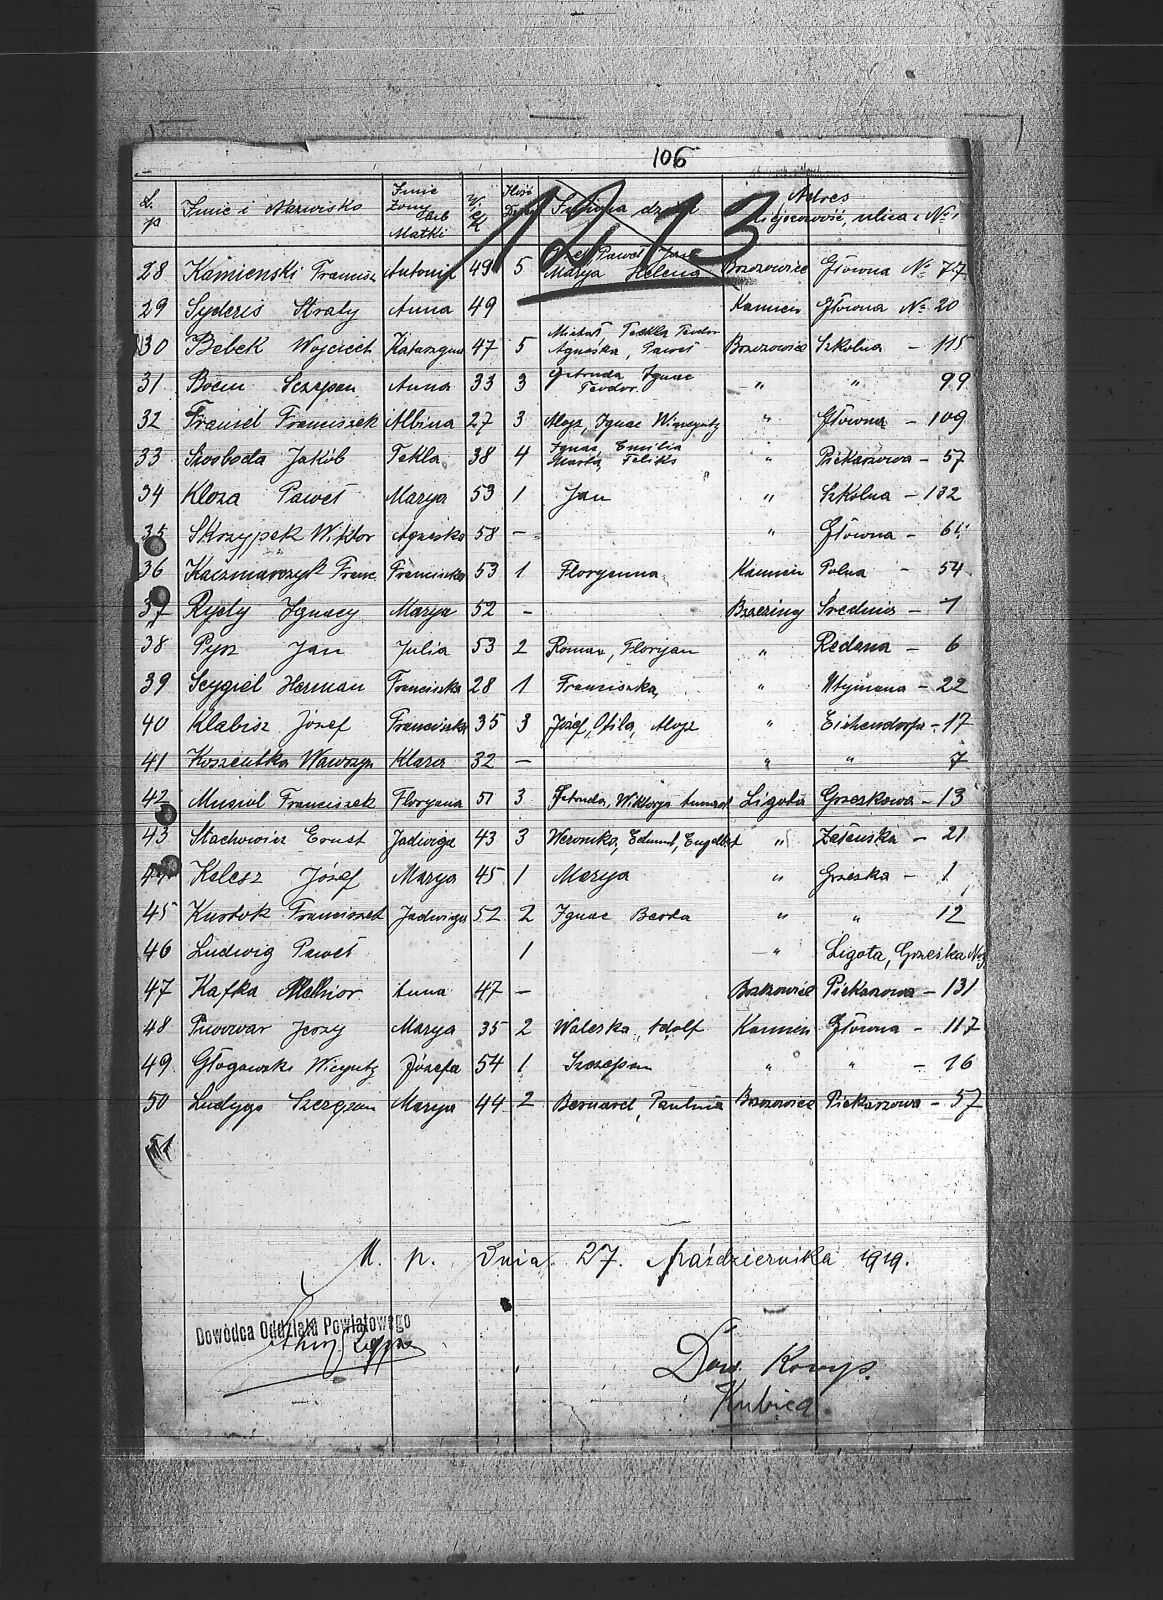 106
L. p
Imię i Nazwisko
Imię Żony lub Matki
Wiek
Ilość
Imiona dzieci
Adres
Miejscowość, ulica i №
1213
28 Kamienski Francisz Antonia 49 5 Paweł Marya Helena Brzozowice Główna № 77
29 Syderis Straty Anna 49 Kamien Główna № 20
30 Bebek Wojciech Katarzyna 47 5 Michał Tekla Teodor Agnieszka, Paweł Brzozowice Szkolna - 115
31 Boem Sczepan Anna 33 3 Getruda Ignac Teodor " " 99
32 Franiel Franciszek Albina 27 3 Alojz, Ignac Wincynty " Główna - 109
33 Swoboda Jakób Tekla 38 4 Ignac, Emilia Marta, Feliks " Piekarzowa - 57
34 Kloza Paweł Marya 53 1 Jan " Szkolna - 132
35 Skrzypek Wiktor Agnieska 58 - " Główna -
36 Kaczmarczyk Franc. Franciszka 53 1 Floryanna Kamien Polna - 54
37 Ryely Ignacy Marya 52 - Brzeziny Srednia - 1
38 Pysz Jan Julia 53 2 Roman, Floryan " Redena - 6
39 Scygiel Herman Franciszka 28 1 Franciszka, " - 22
40 Klabisz Józef Franciszka 35 3 Józef, Otila, Alojz " Eichendorfa - 17
41 Koszentka Wawrzyn Klara 32 - " " 7
42 Musiol Franciszek Floryana 51 3 Getruda, Wiktorya Ligota Grzeskowa - 13
43 Stachowicz Ernst Jadwiga 43 3 Weronika, Edmund, Engelbert " Zeleńska - 21
44 Kalesz Józef Marya 45 1 Marya " Grzeska - 1
45 Kurtok Franciszek Jadwiga 52 2 Ignac Berta " " 12
46 Ludwig Paweł 1 " Ligota, Grzeska
47 Kafka Melhior Anna 47 - Brzozowice Piekarzowa - 131
48 Piwowar Jerzy Marya 35 2 Waleska, Adolf Kamien Główna - 117
49. Głogowski Wicynty Józefa 54 1 Szczepan " " - 16
50 Ludyga Szczepan Marya 44 2 Bernard, Paulina Brzozowice Piekarzowa - 57
51
M. p. Dnia 27. Października 1919.
Dowódca Oddziału Powiatowego
Dow. Komp.
Kubica.